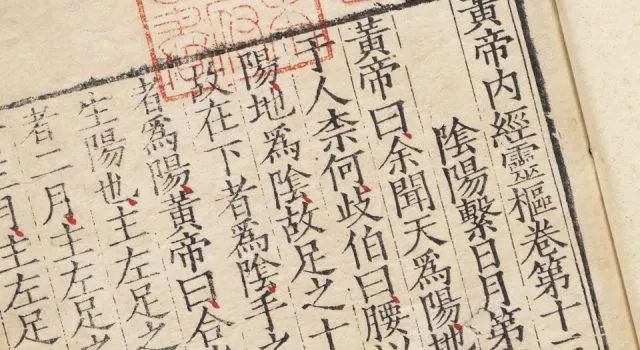 黃帝內經靈樞卷第十二
陰陽繫日月第
黃帝曰余聞天為陽地
于人柰何歧伯曰腰以
陽地為陰故足之十
故在下者為陰手之
者為陽黃帝曰合
生陽也主左足之
者二月主左足之
月主左足